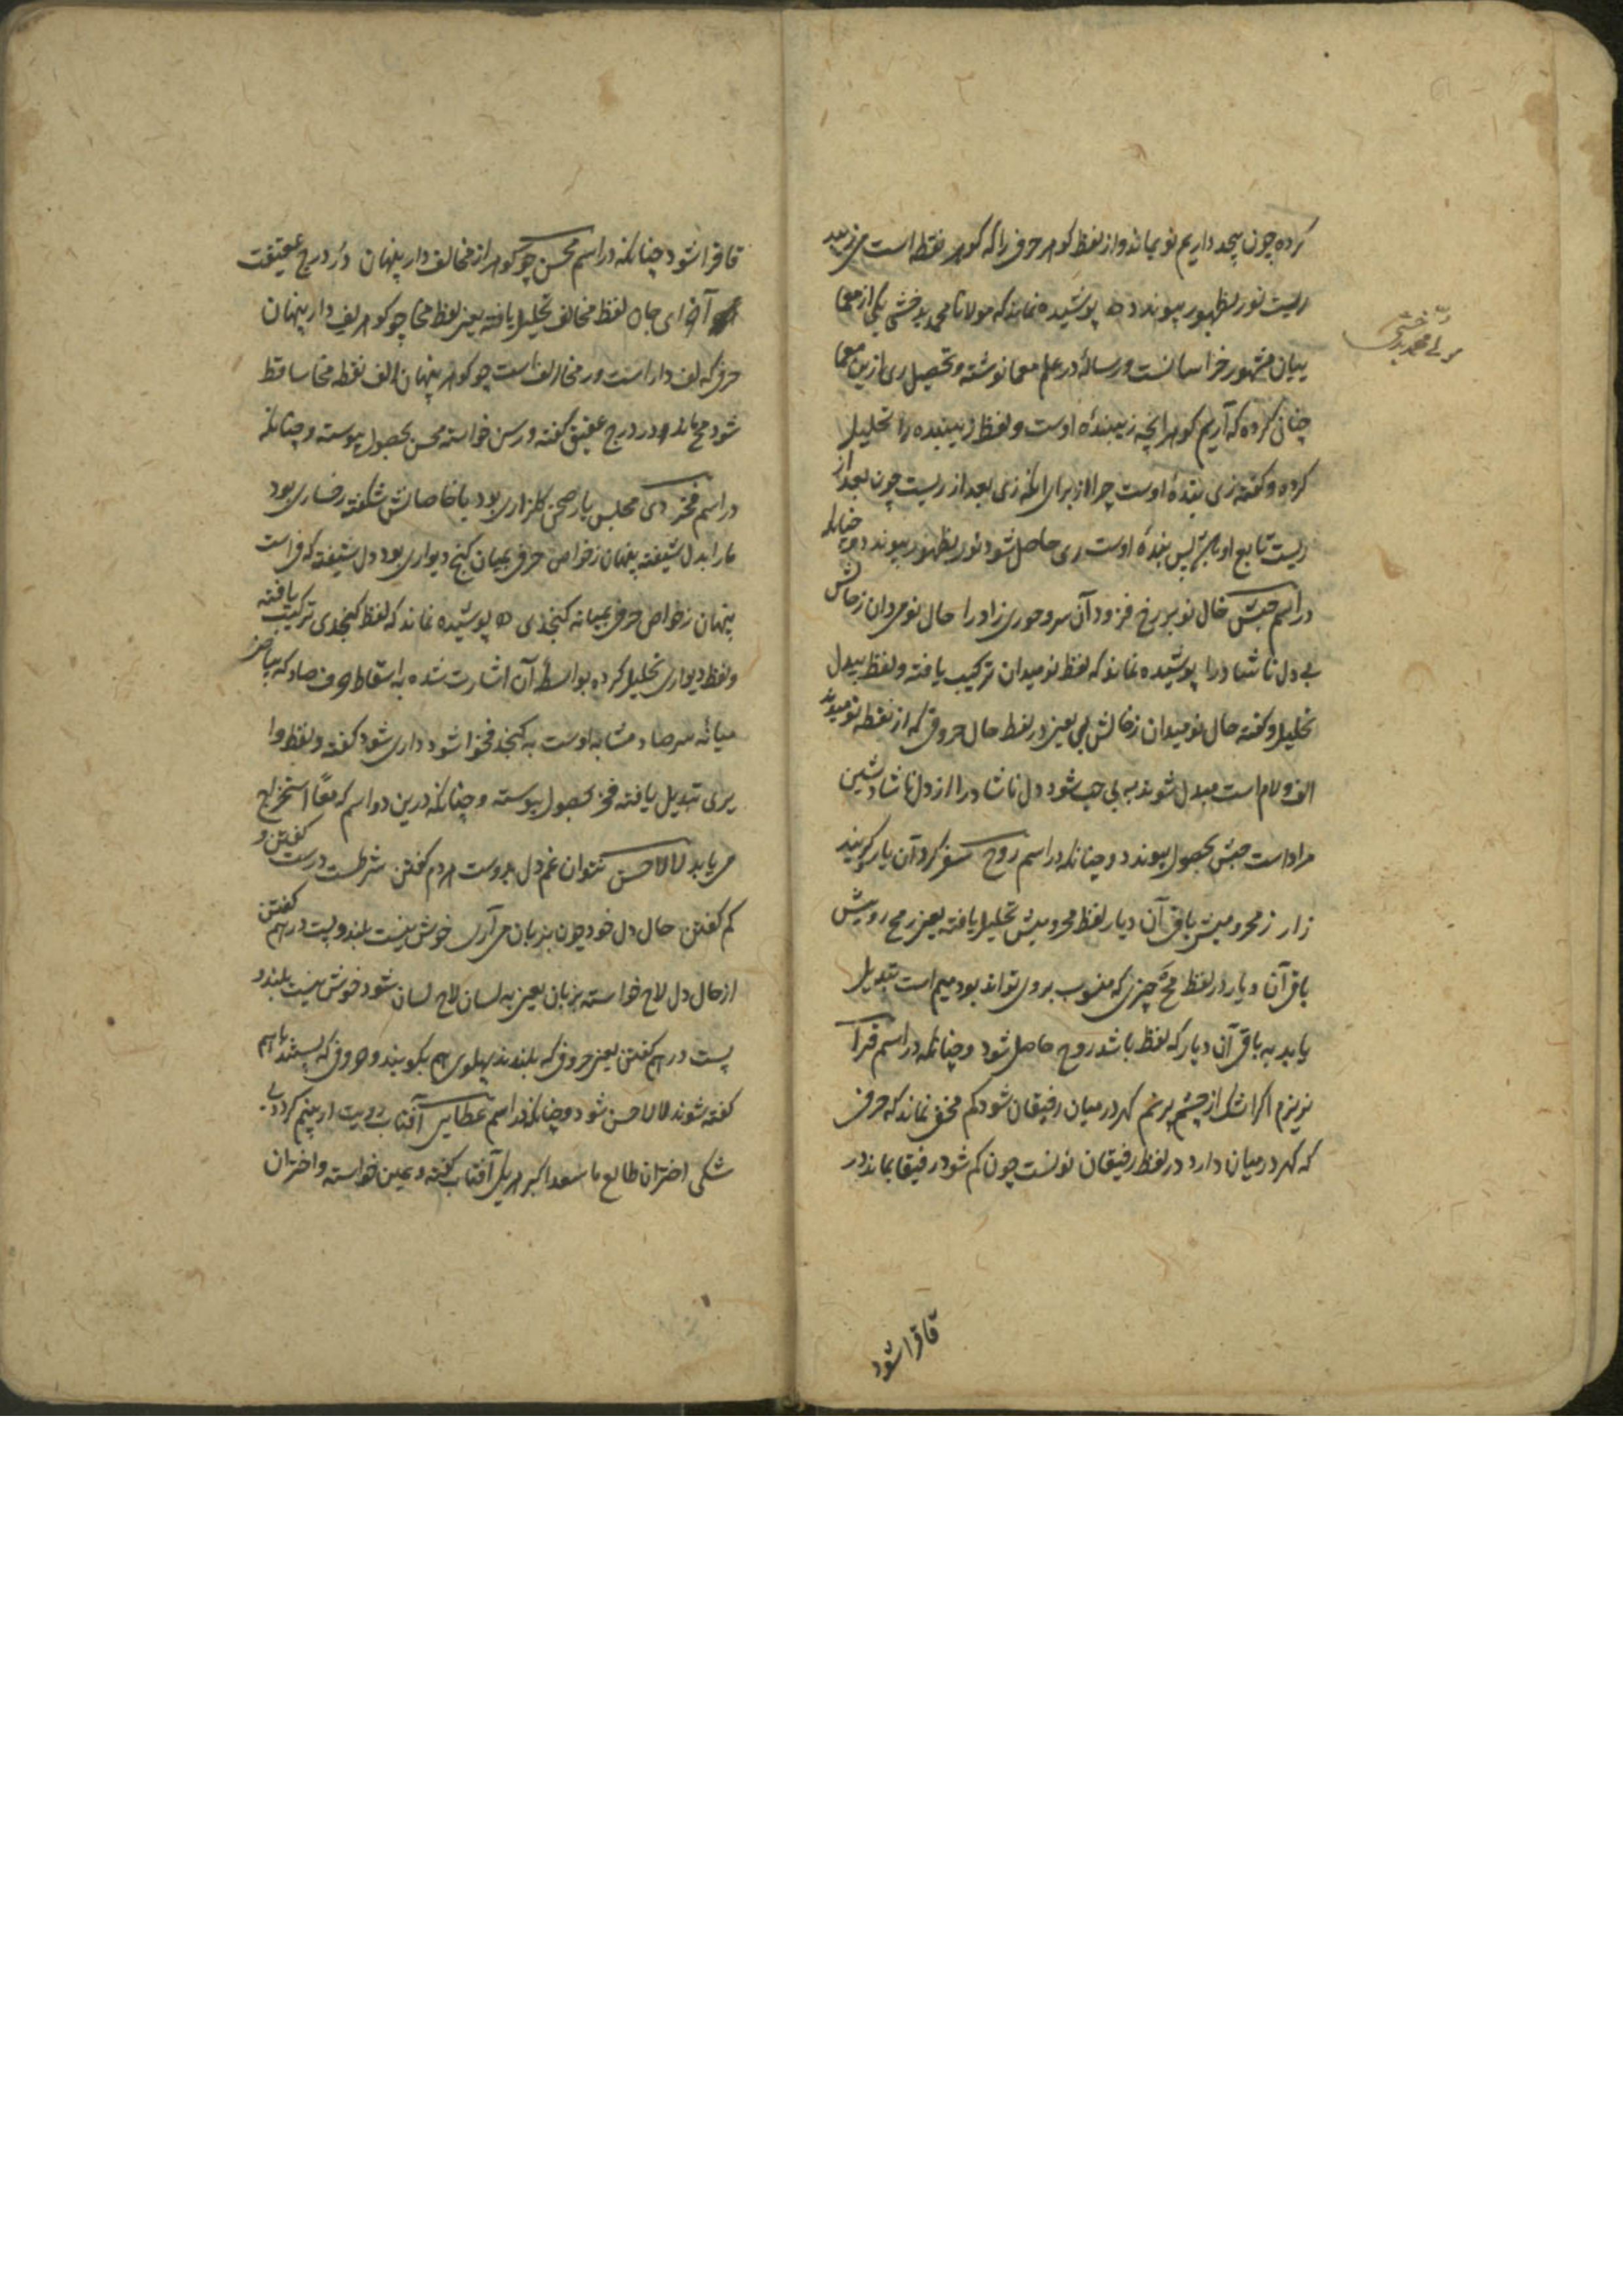 کرده چون بیحد داریم نو بماند و از لفظ کوهر حرفی را که کوهر نقطه است می‌زیبد
ریست نور بظهور پیوندد پوشیده نماند که مولانا محمد بدخشی یکی از معما
مولانا محمد بدخشی
بیان مشهور خراسانست و رسالهٔ در علم معما نوشته و تحصیل ری ازین معما
چنان کرده که آریم کوهر آنچه زیبندهٔ اوست و لفظ زیبنده را تحلیل
کرده و گفته زی بندهٔ اوست چرا از برای آنکه زی بعد از ریست چون بعد از
ریست تابع او باشد پس بندهٔ اوست ری حاصل شود نور بظهور پیوندد و چنانکه
در اسم حبش خال نو بر رخ فزود آن سرو حوری‌زاد را حال نومیدان زخالش
بی دل ناشاد را پوشیده نماند که لفظ نومیدان ترکیب یافته و لفظ بیدل
تحلیل و گفته حال نومیدان زخالش بی یعنی در لفظ حال حروفی که از نقطه نومیدند
الف و لام است مبدل شوند به بی حب شود دل ناشاد را از دل ناشاد شین
مراد است حبش بحصول پیوندد و چنانکه در اسم روح سفر کرد آن یار کزیند
زار ز محرومیش باقی آن دیار لفظ محرومیش تحلیل یافته یعنی رمح رویش
باقی آن دیار در لفظ مح چیزی که منسوب بروی تواند بود میم است تبدیل
یابد به باقی آن دیار که لفظ باشد روح حاصل شود و چنانکه در اسم قرا
نریزم اگر اشک از چشم پر نم کهر در میان رفیقان شود کم مخفی نماند که حرفی
که کهر در میان دارد در لفظ رفیقان نونست چون کم شود رفیقا بماند در
قا قرا شود
قا قرا شود چنانکه در اسم محسن چو کوهر از مخالف دار پنهان دُر درج عقیقت
آخر ای جان لفظ مخالف تحلیل یافته یعنی لفظ مخا چو کوهر لف دار پنهان
حرفی که لف دار است در مخا الف است چو کوهر پنهان الف نقطه مخا ساقط
شود مح ماند و در درج عقیق گفته و رسن خواسته محسن بحصول پیوسته و چنانکه
در اسم فخر دی مجلس یار صحن کلزاری بود با خاصانش شکفته رخساری بود
ما را بدل شیفته پنهان زخواص حرفی بمیان کنج دیواری بود دل شیفته که فراست
پنهان زخواص حرفی بمیانه کنجدی پوشیده نماند که لفظ کنجدی ترکیب یافته
و لفظ دیواری تحلیل کرده بواسطه آن اشارت شده به اسقاط حرف صاد که بیاض
میانه سر صاد مشابه اوست به کنجد فخوا شود داری شود گفته و لفظ وا
بری تبدیل یافته فخر بحصول پیوسته و چنانکه درین دو اسم که معًا استخراج
می یابد لالا حسن نتوان غم دل بدوست هر دم گفتن شرطست درست گفتن و
کم گفتن حال دل خود چون بزبان می آری خوش نیست بلند و پست در هم گفتن
از حال دل لاح خواسته بزبان یعنی به لسان لاح لسان شود خوش نیست بلند و
پست در هم گفتن یعنی حروفی که بلندند پهلوی هم بگویند و حروفی که پستند با هم
گفته شوند لالا حسن شود و چنانکه در اسم عطا یی آفتاب رویت ار بینم کردد بی
شکی اختران طالع ما سعد اکبر هر یکی آفتاب گفته و عین خواسته و اختران